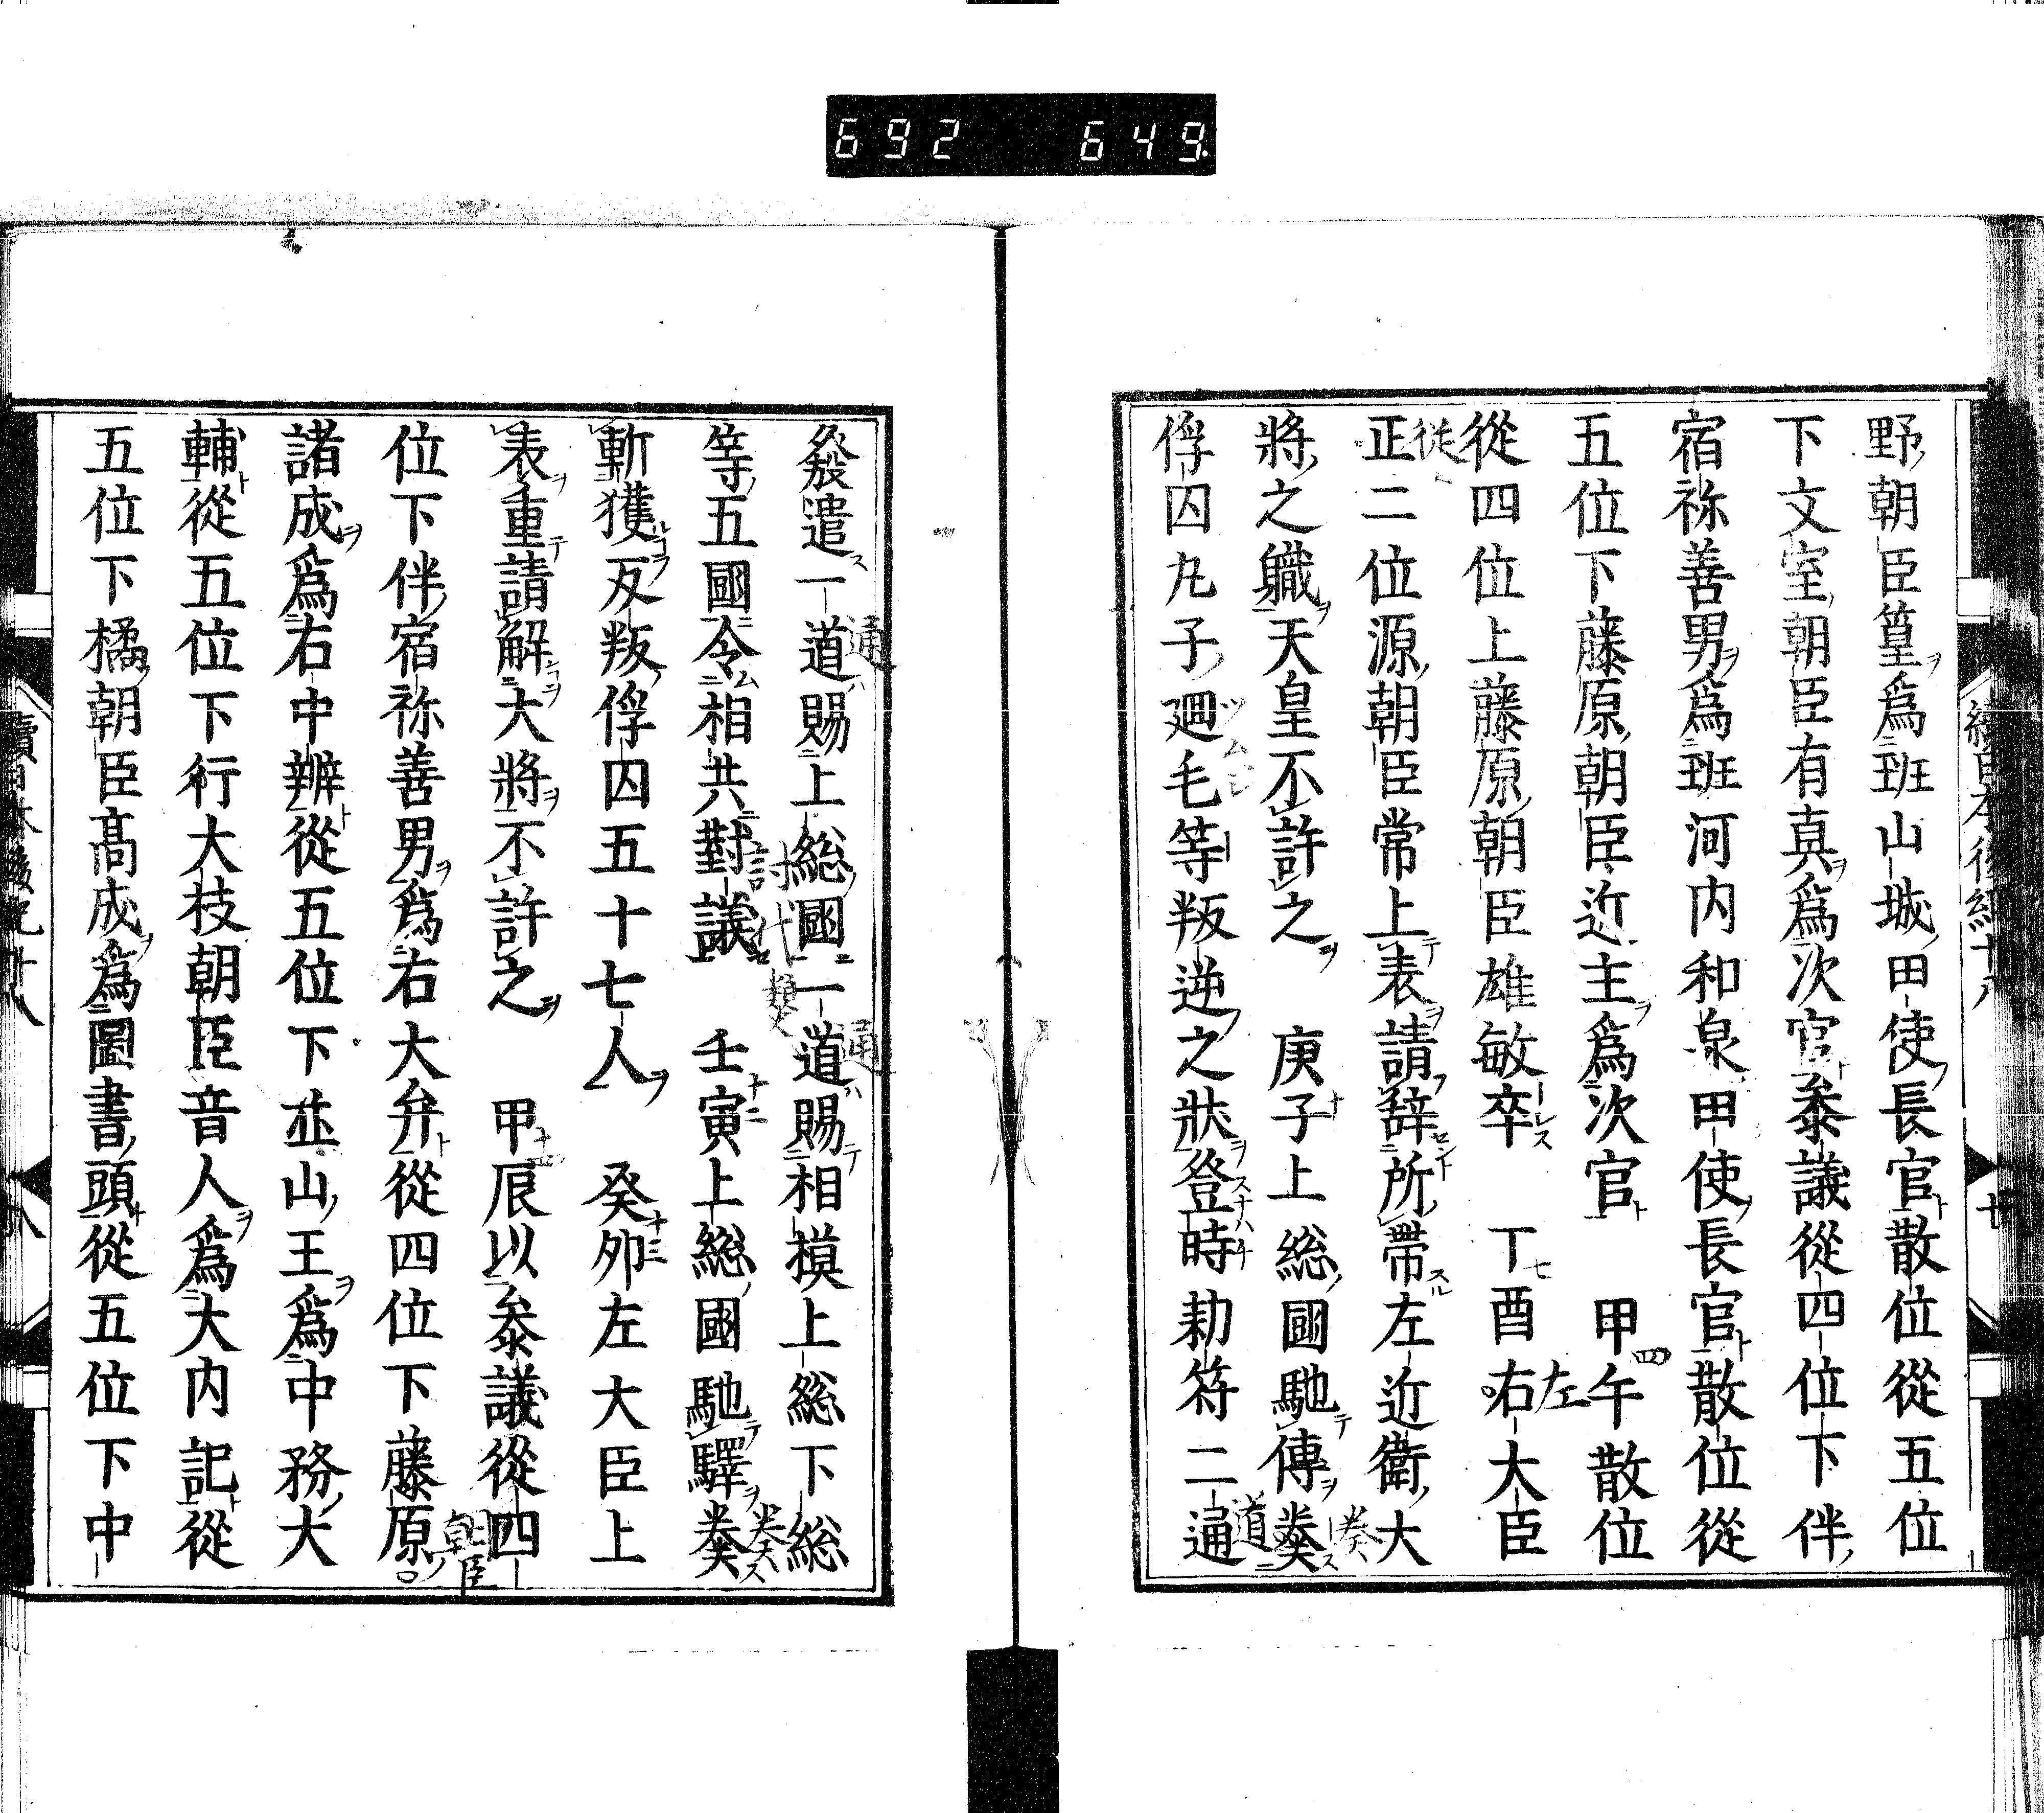 692 649
野朝臣篁爲班山城田使長官散位從五位
下文室朝臣有真爲次官叅議從四位下伴
宿祢善男爲班河内和泉田使長官散位從
五位下藤原朝臣近主爲次官 甲午散位
從四位上藤原朝臣雄敏卒 丁酉右大臣
正二位源朝臣常上表請辭所帶左近衛大
將之職天皇不許之 庚子上総國馳傳奏
俘囚丸子廻毛等叛逆之狀登時勅符二通
發遣一道賜上総國一道賜相模上総下総
等五國令相共對議 壬寅上総國馳驛奏
斬獲反叛俘囚五十七人 癸卯左大臣上
表重請解大將不許之 甲辰以叅議從四
位下伴宿祢善男爲右大弁從四位下藤原
諸成爲右中辨從五位下並山王爲中務大
輔從五位下行大枝朝臣音人爲大内記從
五位下橘朝臣髙成爲圖書頭從五位下中